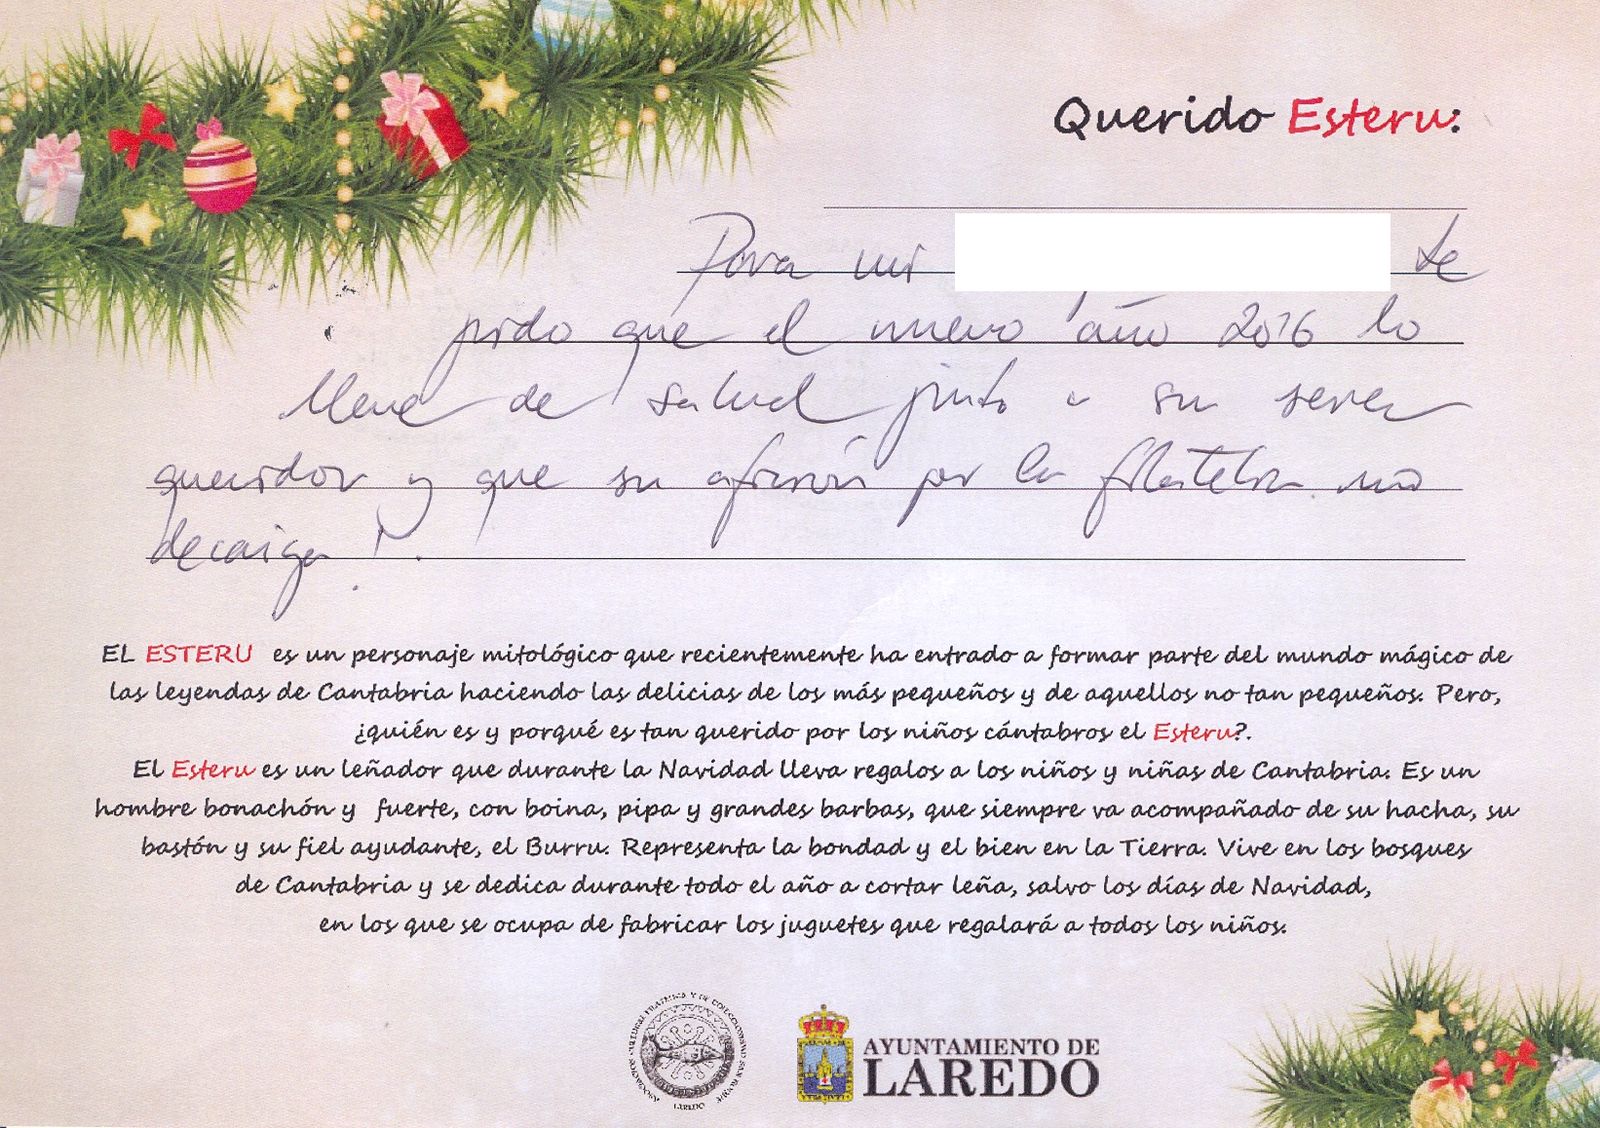 Querido Esteru:
Para mi te
pido que el nuevo año 2016 lo
llene de salud junto a su seres
queridos y que su afición por la filatelia no
decaiga !.
EL ESTERU es un personaje mitológico que recientemente ha entrado a formar parte del mundo mágico de
las leyendas de Cantabria haciendo las delicias de los más pequeños y de aquellos no tan pequeños. Pero,
¿quién es y porqué es tan querido por los niños cántabros el Esteru?.
El Esteru es un leñador que durante la Navidad lleva regalos a los niños y niñas de Cantabria. Es un
hombre bonachón y fuerte, con boina, pipa y grandes barbas, que siempre va acompañado de su hacha, su
bastón y su fiel ayudante, el Burru. Representa la bondad y el bien en la Tierra. Vive en los bosques
de Cantabria y se dedica durante todo el año a cortar leña, salvo los días de Navidad,
en los que se ocupa de fabricar los juguetes que regalará a todos los niños.
ASOCIACION CULTURAL FILATELICA Y DE COLECCIONISMO SAN ROQUE
LAREDO
AYUNTAMIENTO DE
LAREDO